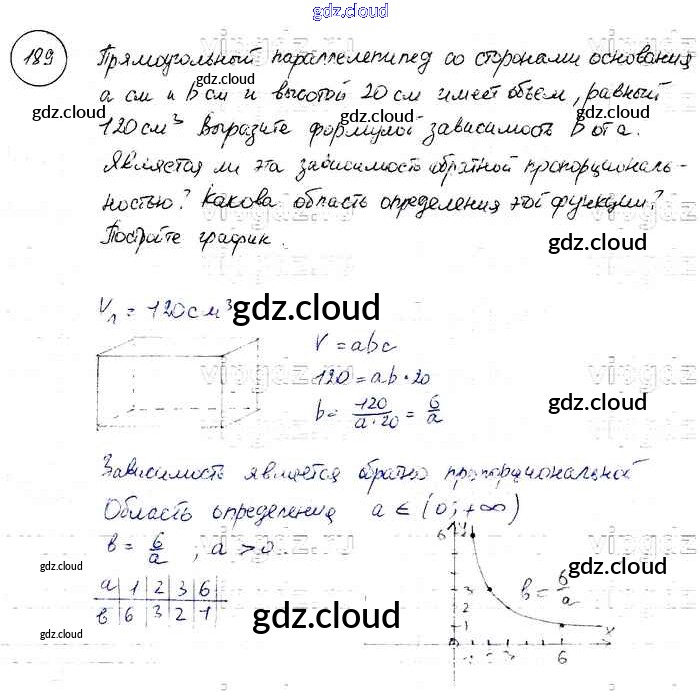 gdz.cloud
189 Прямоугольный параллелепипед со сторонами основания
а см и b см и высотой 20 см имеет объем, равный
120 см³ Выразите формулой зависимость b от а.
Является ли эта зависимость обратной пропорциональ-
ностью? Какова область определения этой функции?
Постройте график.
V₁ = 120 см³
V = abc
120 = ab·20
b = 120/a·20 = 6/a
Зависимость является обратно пропорциональной
Область определения a ∈ (0; +∞)
b = 6/a, a > 0
a | 1 | 2 | 3 | 6
b | 6 | 3 | 2 | 1
b = 6/a
6
3
2
1
1 2 3 6
x
gdz.cloud
gdz.cloud
gdz.cloud
gdz.cloud
gdz.cloud
gdz.cloud
gdz.cloud
gdz.cloud
gdz.cloud
gdz.cloud